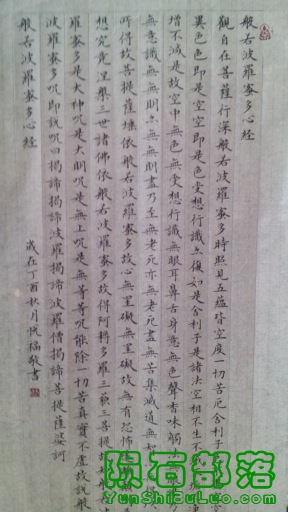 般若波羅蜜多心經
觀自在菩薩行深般若波羅蜜多時照見五蘊皆空度一切苦厄舍利子
異色色即是空空即是色受想行識亦復如是舍利子是諸法空相不生不
增不減是故空中無色無受想行識無眼耳鼻舌身意無色聲香味觸法
無意識無無明亦無無明盡乃至無老死亦無老死盡無苦集滅道無
所得故菩提薩埵依般若波羅蜜多故心無罣礙無罣礙故無有恐怖
想究竟涅槃三世諸佛依般若波羅蜜多故得阿耨多羅三藐三菩提
羅蜜多是大神咒是大明咒是無上咒是無等等咒能除一切苦真實不虛故說般
波羅蜜多咒即說咒曰揭諦揭諦波羅揭諦波羅僧揭諦菩提薩婆訶
般若波羅蜜多心經
歲在丁酉秋月福敬書
陨石部落
YunShiBuLuo.Com